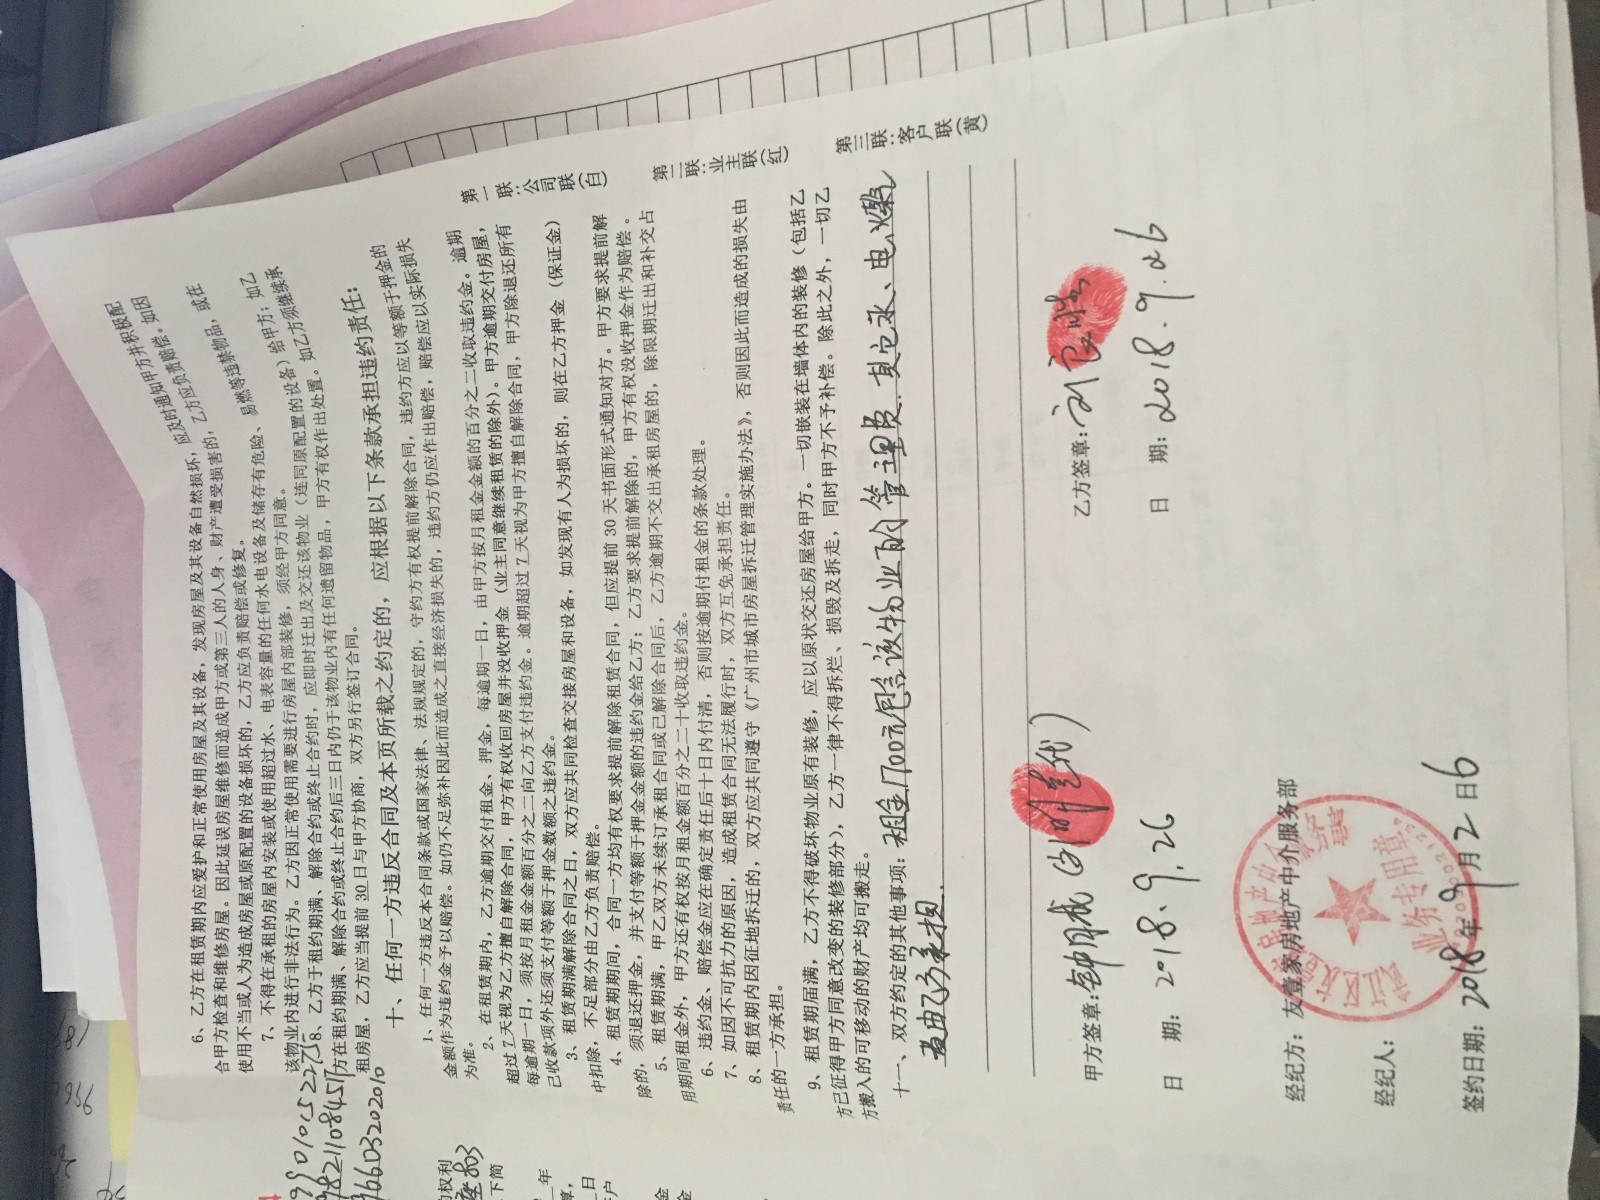 6、乙方在租赁期内应爱护和正常使用房屋及其设备，发现房屋及其设备自然损坏，应及时通知甲方并积极配
合甲方检查和维修房屋。因此延误房屋维修而造成甲方或第三人的人身、财产遭受损害的，乙方应负责赔偿。如因
使用不当或人为造成房屋或原配置的设备损坏的，乙方应负责赔偿或修复。
7、不得在承租的房屋内安装或使用超过水、电表容量的任何水电设备及储存有危险、易燃等违禁物品，或在
该物业内进行非法行为。乙方因正常使用需要进行房屋内部装修，须经甲方同意。
8、乙方于租约期满、解除合约或终止合约时，应即时迁出及交还该物业（连同原配置的设备）给甲方；如乙
方在租约期满、解除合约或终止合约后三日内仍于该物业内有任何遗留物品，甲方有权作出处置。如乙方须继续承
租房屋，乙方应当提前 30 日与甲方协商，双方另行签订合同。
十、任何一方违反合同及本页所载之约定的，应根据以下条款承担违约责任：
1、任何一方违反本合同条款或国家法律、法规规定的，守约方有权提前解除合同，违约方应以等额于押金的
金额作为违约金予以赔偿。如仍不足弥补因此而造成之直接经济损失的，违约方仍应作出赔偿，赔偿应以实际损失
为准。
2、在租赁期内，乙方逾期交付租金、押金，每逾期一日，由甲方按月租金金额的百分之二收取违约金。逾期
超过 7 天视为乙方擅自解除合同，甲方有权收回房屋并没收押金（业主同意继续租赁的除外）。甲方逾期交付房屋，
每逾期一日，须按月租金金额百分之二向乙方支付违约金。逾期超过 7 天视为甲方擅自解除合同，甲方除退还所有
已收款项外还须支付等额于押金数额之违约金。
3、租赁期满解除合同之日，双方应共同检查交接房屋和设备，如发现有人为损坏的，则在乙方押金（保证金）
中扣除，不足部分由乙方负责赔偿。
4、租赁期期间，合同一方均有权要求提前解除租赁合同，但应提前 30 天书面形式通知对方。甲方要求提前解
除的，须退还押金，并支付等额于押金金额的违约金给乙方；乙方要求提前解除的，甲方有权没收押金作为赔偿。
5、租赁期满，甲乙双方未续订承租合同或已解除合同后，乙方逾期不交出承租房屋的，除限期迁出和补交占
用期间租金外，甲方还有权按月租金额百分之二十收取违约金。
6、违约金、赔偿金应在确定责任后十日内付清，否则按逾期付租金的条款处理。
7、如因不可抗力的原因，造成租赁合同无法履行时，双方互免承担责任。
8、租赁期内因征地拆迁的，双方应共同遵守《广州市城市房屋拆迁管理实施办法》，否则因此而造成的损失由
责任的一方承担。
9、租赁期届满，乙方不得破坏物业原有装修，应以原状交还房屋给甲方。一切嵌装在墙体内的装修（包括乙
方已征得甲方同意改变的装修部分），乙方一律不得拆烂、损毁及拆走，同时甲方不予补偿。除此之外，一切乙
方搬入的可移动的财产均可搬走。
十一、双方约定的其他事项：租金1700元包含该物业的管理费.其它水、电、燃气
费由乙方承担.
甲方签章：
日 期： 2018.9.26
乙方签章：刘
日 期：2018.9.26
经纪方：友壹家房地产中介服务部
业务专用章
经纪人：
签约日期：2018年9月26日
第一联：公司联（白）
第二联：业主联（红）
第三联：客户联（黄）